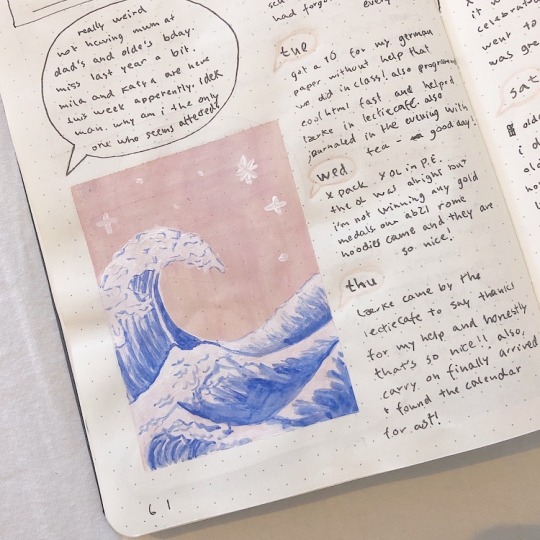 really weird
not having mum at
dad's and olde's bday.
miss last year a bit.
mila and kafka are here
this week apperently. idek
man. why am i the only
one who seems affected?
61
had forgo
every
tue
got a 10 for my german
paper without help that
we did in class!. also programmed
cool html fast and helped
lærke in lectiecafé. also
journaled in the evening with
tea - good day!
wed
x pack x OL in P.E.
the ol was alright but
i'm not winning any gold
medals. our ab21 rome
hoodies came and they are
so nice!
thu
lærke came by the
lectiecafe to say thanks
for my help and honestly
that's so nice!! also,
carry on finally arrived
+ found the calendar
for ast!
it w
celebrat
went to
was gre
sat
olde
i d